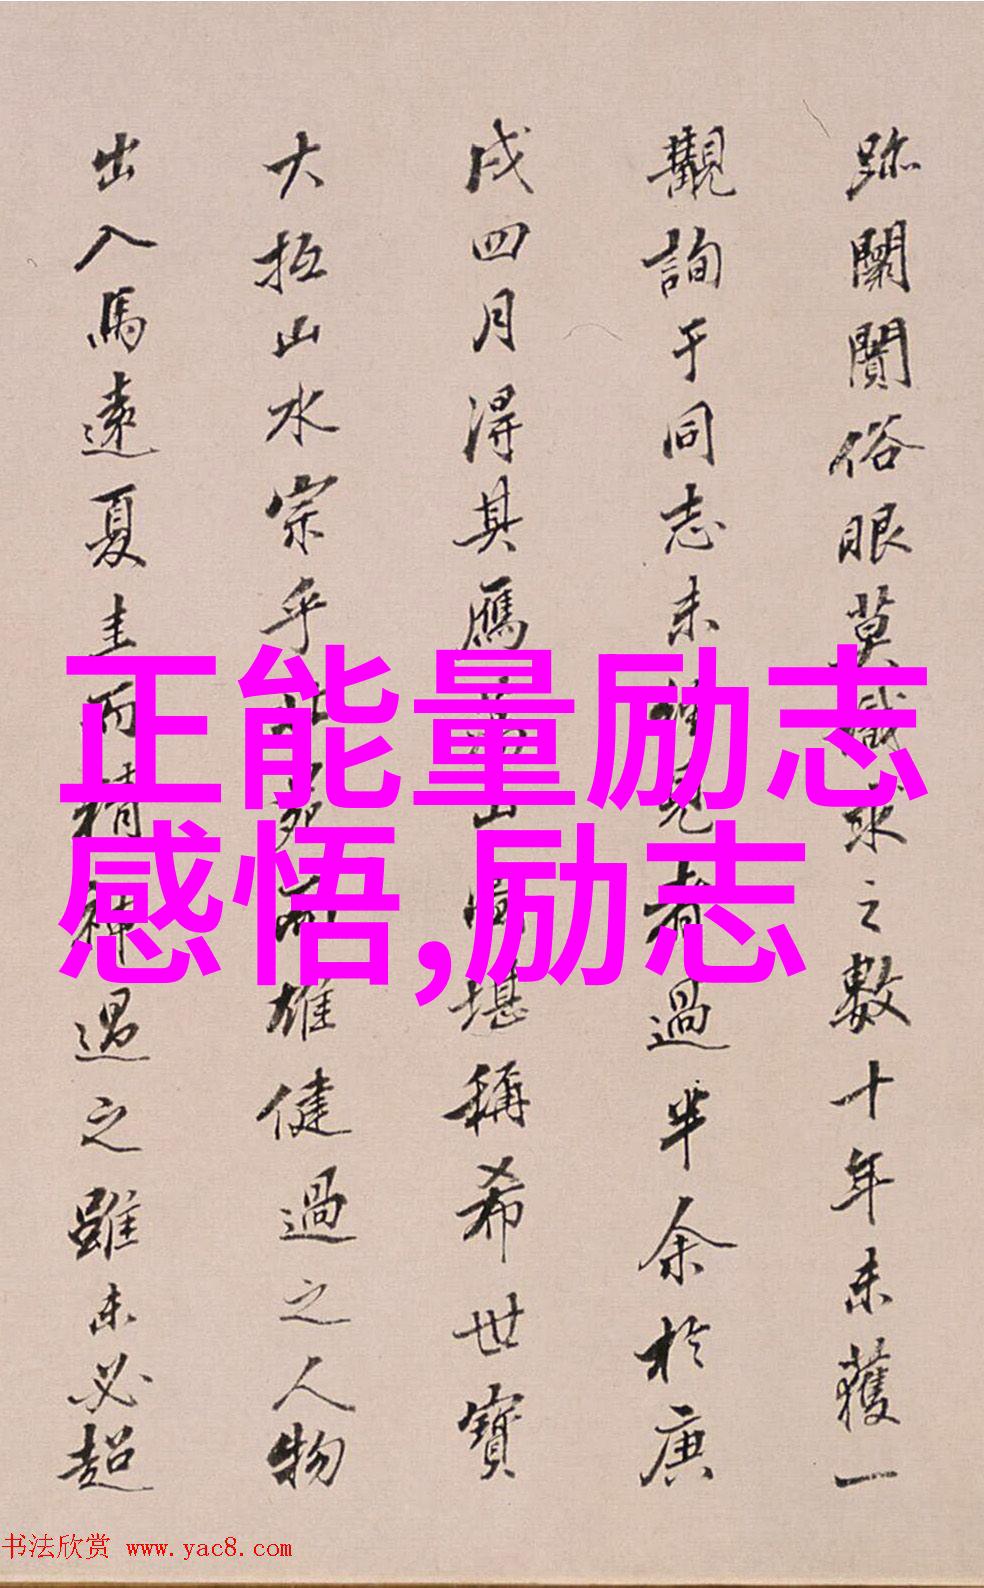 正能量励志
感悟,励志
跡闤闠俗眼莫識求之數十年未獲一
觀詢于同志未見者過半余於庚
戌四月得其鴈山堪稱希世寶
大抵山水宗乎而雄健過之人物
出入馬遠夏圭而精神過之雖未必超
书法欣赏 www.yac8.com